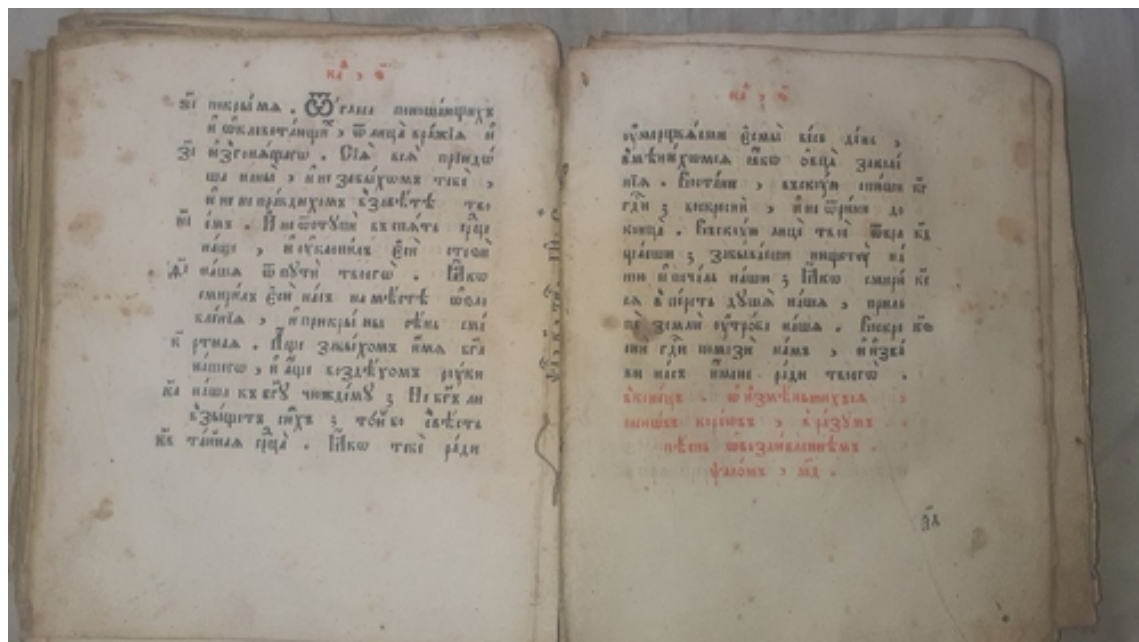 ка , ѳ
покры́ мѧ . Ѿ гласа поноша́ющихъ
и҆ ѡ҆клевета́ющи , ѿ лица̀ вра́жїѧ и҆
и҆згонѧ́щагѡ . Сїѧ̀ всѧ̀ прїидо́
ша на ны̀ , и҆ не забы́хомъ тебѐ ,
и҆ не непра́вдихомъ в̾ завѣ́тѣ тво
е́мъ . И҆ не ѿступѝ въспѧ́ть се́рдце
на́ше , и҆ ᲂу҆клони́лъ є҆сѝ стезѝ
на́шѧ ѿ пꙋтѝ твоегѡ̀ . Ꙗ҆́кѡ
смири́лъ є҆сѝ на́съ на мѣ́стѣ ѡ҆ѕло
бле́нїѧ , и҆ прикры́ ны сѣ́нь сме́
ртнаѧ . А҆́ще забы́хомъ и҆́мѧ бг҃а
на́шегѡ , и҆ а҆́ще воздѣ́хомъ рꙋ́ки
на́ша къ бг҃ꙋ чюжде́мꙋ ; Не бг҃ъ ли
в̾зы́щетъ си́хъ ; то́й бо свѣ́сть
та́йнаѧ се́рдца̀ . Ꙗ҆́кѡ тебѐ ра́ди
ка , ѳ
ᲂу҆мерщвлѧ́еми є҆смы̀ ве́сь де́нь ,
в̾мѣни́хомсѧ ꙗ҆́кѡ ѻ҆́вца̀ заколе́
нїѧ . Воста́ни , въскꙋ́ю спи́ши
гд҃и ; воскреснѝ , и҆ не ѿри́ни до
конца̀ . Въскꙋ́ю лицѐ твоѐ ѿвра
ща́еши ; забыва́еши нищетꙋ̀ на́
шꙋ и҆ печа́ль на́шꙋ ; Ꙗ҆́кѡ смири́
сѧ в̾ пе́рсть дꙋша̀ на́ша , прильпѐ
землѝ ᲂу҆тро́ба на́ша . Воскре
снѝ гд҃и помозѝ на́мъ , и҆ и҆зба́
ви на́съ и҆́мене ра́ди твоегѡ̀ .
в̾коне́цъ . ѡ҆ и҆змѣ́ньшихсѧ ,
сыно́мъ коре́ѡмъ , в̾ ра́зꙋмъ .
пѣ́снь ѡ҆ возлю́бленнѣмъ .
ѱало́мъ , мд .